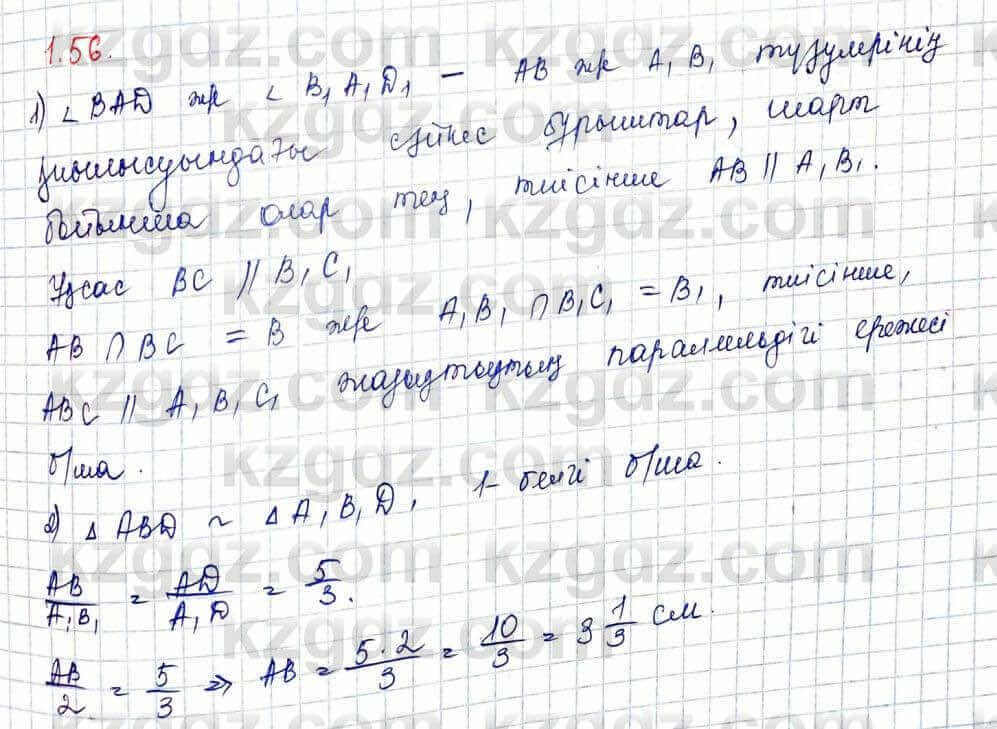 1.56.
1) ∠ BAD және ∠ B₁A₁D₁ – AB және A₁B₁ түзулерінің
қиылысуындағы сәйкес бұрыштар, шарт
бойынша олар тең, тиісінше AB // A₁B₁.
Ұқсас BC // B₁C₁
AB ∩ BC = B және A₁B₁ ∩ B₁C₁ = B₁, тиісінше,
ABC // A₁B₁C₁ жазықтықтың параллельдігі ережесі
б/ша.
2) △ ABD ~ △ A₁B₁D, 1-белгі б/ша.
AB/A₁B₁ = AD/A₁D = 5/3.
AB/2 = 5/3 ⇒ AB = 5·2/3 = 10/3 = 3 1/3 см.
kzgdz.com